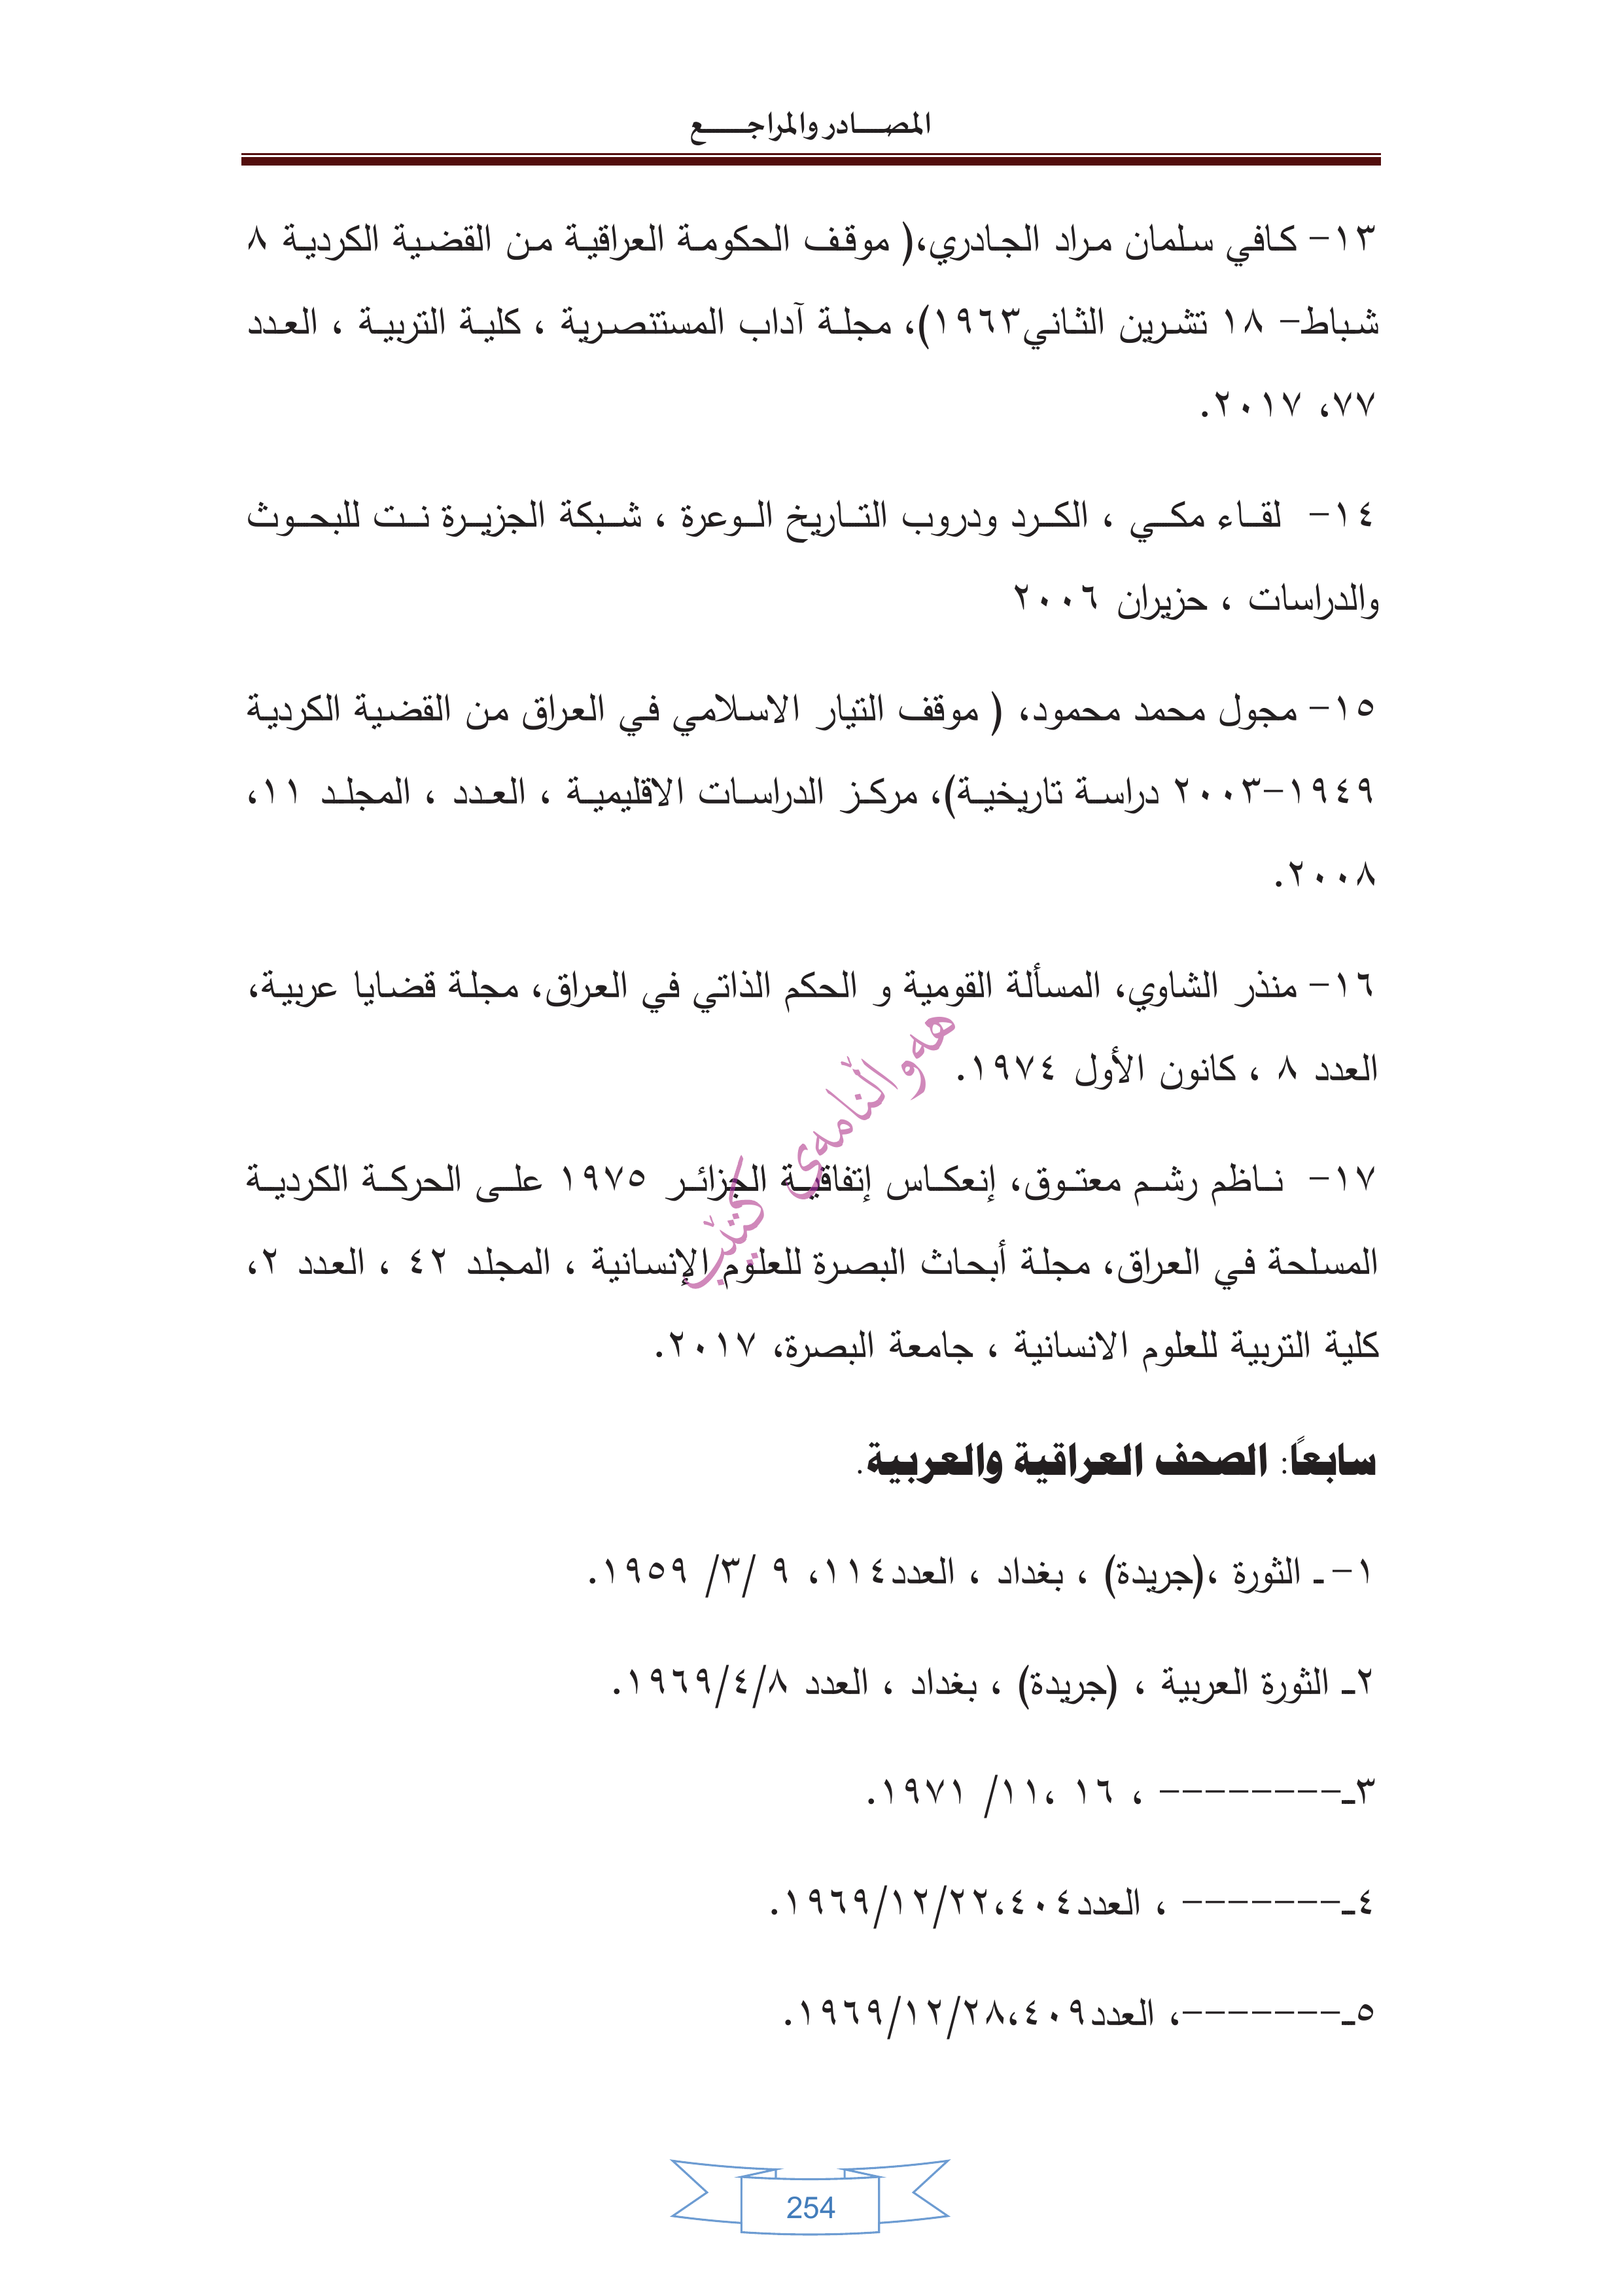 المصــــادر والمراجـــــع
١٣- كافي سلمان مراد الجادري،( موقف الحكومة العراقية من القضية الكردية ٨
شباط- ١٨ تشرين الثاني١٩٦٣)، مجلة آداب المستنصرية ، كلية التربية ، العدد
٧٧، ٢٠١٧.
١٤- لقاء مكي ، الكرد ودروب التاريخ الوعرة ، شبكة الجزيرة نت للبحوث
والدراسات ، حزيران ٢٠٠٦
١٥- مجول محمد محمود، ( موقف التيار الاسلامي في العراق من القضية الكردية
١٩٤٩-٢٠٠٣ دراسة تاريخية)، مركز الدراسات الاقليمية ، العدد ، المجلد ١١،
٢٠٠٨.
١٦- منذر الشاوي، المسألة القومية و الحكم الذاتي في العراق، مجلة قضايا عربية،
العدد ٨ ، كانون الأول ١٩٧٤.
١٧- ناظم رشم معتوق، إنعكاس إتفاقية الجزائر ١٩٧٥ على الحركة الكردية
المسلحة في العراق، مجلة أبحاث البصرة للعلوم الإنسانية ، المجلد ٤٢ ، العدد ٢،
كلية التربية للعلوم الانسانية ، جامعة البصرة، ٢٠١٧.
سابعاً: الصحف العراقية والعربية.
١- ـ الثورة ،(جريدة) ، بغداد ، العدد١١٤، ٩ /٣/ ١٩٥٩.
٢ـ الثورة العربية ، (جريدة) ، بغداد ، العدد ١٩٦٩/٤/٨.
٣ـ-------- ، ١٦ ،١١/ ١٩٧١.
٤ـ------- ، العدد٤٠٤،١٩٦٩/١٢/٢٢.
٥ـ-------، العدد٤٠٩،١٩٦٩/١٢/٢٨.
هەواڵنامەی کتێب
254